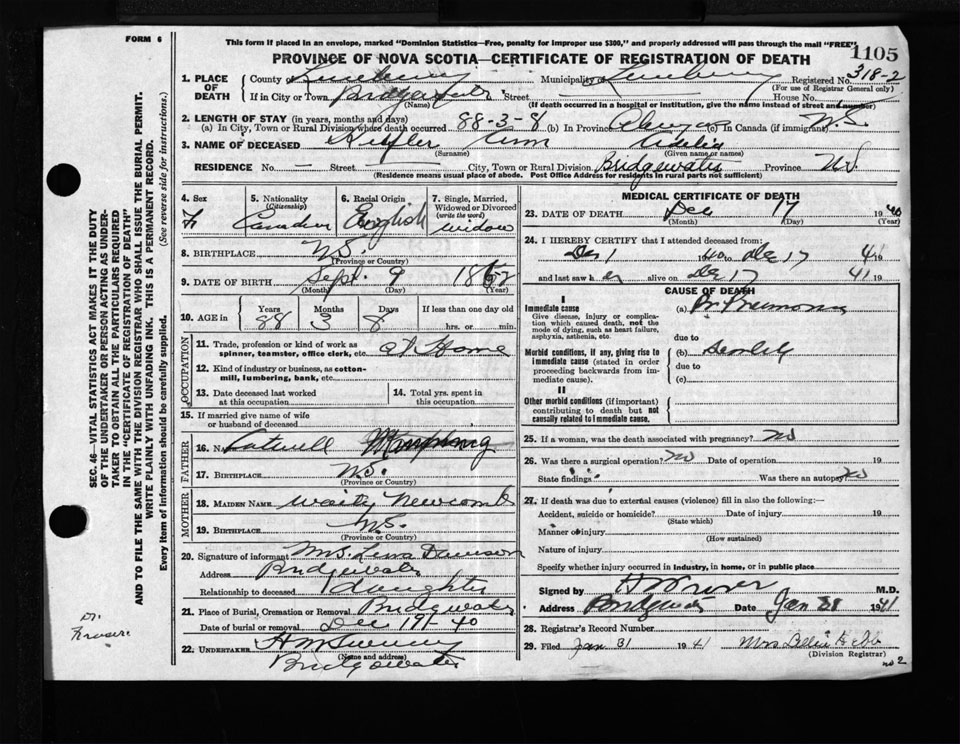 FORM 6
This form if placed in an envelope, marked "Dominion Statistics—Free, penalty for improper use $300," and properly addressed will pass through the mail "FREE"
1105
PROVINCE OF NOVA SCOTIA—CERTIFICATE OF REGISTRATION OF DEATH
1. PLACE OF DEATH County of Lunenburg Municipality of Lunenburg Registered No. 318-2
(For use of Registrar General only)
If in City or Town Bridgewater Street House No.
(If death occurred in a hospital or institution, give the name instead of street and number)
2. LENGTH OF STAY (in years, months and days)
(a) In City, Town or Rural Division where death occurred 88-3-8 (b) In Province Always (c) In Canada (if immigrant) N.S.
3. NAME OF DECEASED Ann Adelia
(Surname) (Given name or names)
RESIDENCE No. — Street — City, Town or Rural Division Bridgewater Province NS
(Residence means usual place of abode. Post Office Address for residents in rural parts not sufficient)
4. Sex 5. Nationality (Citizenship) 6. Racial Origin 7. Single, Married, Widowed or Divorced (write the word)
F Canadian English Widow
8. BIRTHPLACE NS
(Province or Country)
9. DATE OF BIRTH Sept. 9 1852
(Month) (Day) (Year)
10. AGE in Years Months Days If less than one day old
88 3 8 hrs. or min.
OCCUPATION
11. Trade, profession or kind of work as spinner, teamster, office clerk, etc. at Home
12. Kind of industry or business, as cotton-mill, lumbering, bank, etc.
13. Date deceased last worked at this occupation
14. Total yrs. spent in this occupation
15. If married give name of wife or husband of deceased
FATHER
16. Name
17. BIRTHPLACE NS.
(Province or Country)
MOTHER
18. MAIDEN NAME Waity Newcomb
19. BIRTHPLACE NS.
(Province or Country)
20. Signature of informant Mrs. Lena Davison
Address Bridgewater
Relationship to deceased daughter
21. Place of Burial, Cremation or Removal Bridgewater
Date of burial or removal Dec 19 - 40
22. UNDERTAKER
(Name and address)
Bridgewater
MEDICAL CERTIFICATE OF DEATH
23. DATE OF DEATH Dec 17 1940
(Month) (Day) (Year)
24. I HEREBY CERTIFY that I attended deceased from:
Dec 1 1940 to Dec 17 41 19
and last saw her alive on Dec 17 41 19
CAUSE OF DEATH
I
Immediate cause
Give disease, injury or complication which caused death, not the mode of dying, such as heart failure, asphyxia, asthenia, etc.
(a) Br Pneumonia
due to
Morbid conditions, if any, giving rise to immediate cause (stated in order proceeding backwards from immediate cause).
(b) Senility
due to
(c)
II
Other morbid conditions (if important) contributing to death but not causally related to immediate cause.
25. If a woman, was the death associated with pregnancy? No
26. Was there a surgical operation? No Date of operation 19
State findings Was there an autopsy? No
27. If death was due to external causes (violence) fill in also the following:—
Accident, suicide or homicide? Date of injury 19
(State which)
Manner of injury
(How sustained)
Nature of injury
Specify whether injury occurred in industry, in home, or in public place
Signed by M.D.
Address Bridgewater Date Jan 1941
28. Registrar's Record Number
29. Filed Jan 31 1941 Mrs
(Division Registrar)
no 2
SEC. 46—VITAL STATISTICS ACT MAKES IT THE DUTY
OF THE UNDERTAKER OR PERSON ACTING AS UNDER-
TAKER TO OBTAIN ALL THE PARTICULARS REQUIRED
IN THE "CERTIFICATE OF REGISTRATION OF DEATH"
AND TO FILE THE SAME WITH THE DIVISION REGISTRAR WHO SHALL ISSUE THE BURIAL PERMIT.
WRITE PLAINLY WITH UNFADING INK. THIS IS A PERMANENT RECORD.
Every item of Information should be carefully supplied. (See reverse side for instructions.)
Dr.